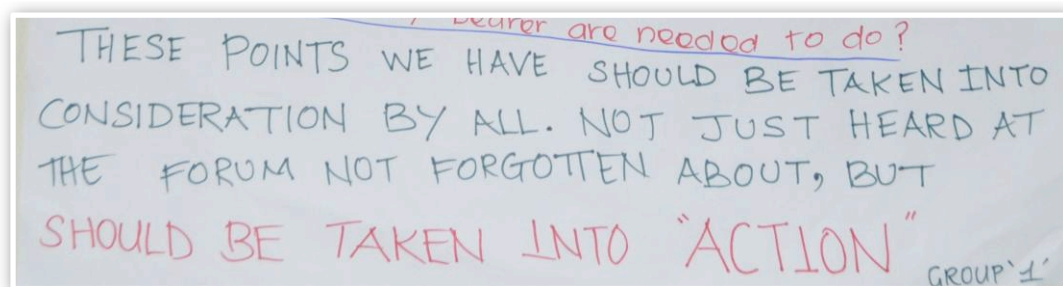 bearer are needed to do?
THESE POINTS WE HAVE SHOULD BE TAKEN INTO
CONSIDERATION BY ALL. NOT JUST HEARD AT
THE FORUM NOT FORGOTTEN ABOUT, BUT
SHOULD BE TAKEN INTO "ACTION"
GROUP '1'